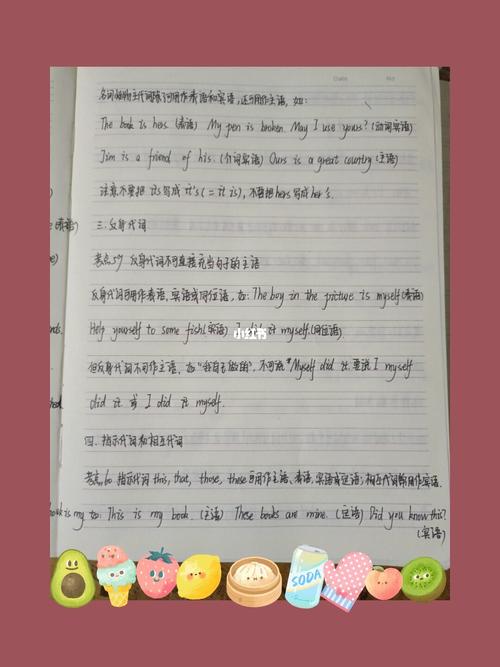 Date No
名词性物主代词除了可用作表语和宾语,还可用作主语,如:
The book is hers. (表语) My pen is broken. May I use yours? (动词宾语)
Jim is a friend of his. (介词宾语) Ours is a great country (主语)
注意不要把 its 写成 it's ( = it is), 不要把 hers 写成 her's.
三. 反身代词
考点59 反身代词不可直接充当句子的主语
反身代词可用作表语、宾语或同位语, 如: The boy in the picture is myself (表语)
Help yourself to some fish (宾语) I did it myself. (同位语)
小红书
但反身代词不可作主语, 如"我自己做的", 不可说 *Myself did it. 要说 I myself
did it 或 I did it myself.
四. 指示代词和相互代词
考点60 指示代词 this, that, those, these 可用作主语、表语、宾语或定语; 相互代词用作宾语.
如: This is my book. (主语) These books are mine. (定语) Did you know this?
(宾语)
SODA